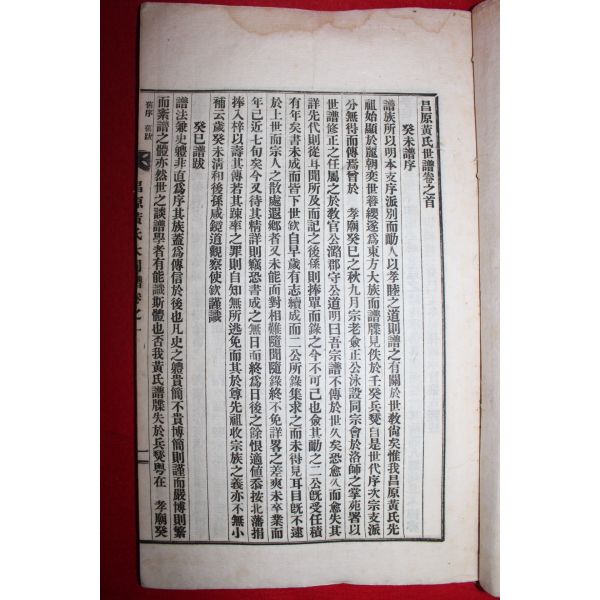 昌原黃氏世譜卷之首
癸未譜序
譜族所以明本支序派別而勵人以孝睦之道則譜之有關於世敎尙矣惟我昌原黃氏先
祖始顯於麗朝奕世簪纓遂爲東方大族而譜牒見佚於壬癸兵燹自是世代序次宗支派
分無得而傳焉曾於 孝廟癸巳之秋九月宗老僉正公泳設同宗會於洛師之掌苑署以
世譜修正之任屬之於敎官公潞郡守公道明曰吾宗譜不傳於世久矣恐愈久而愈失其
詳先代則從耳聞所及而記之後孫則捧單而錄之今不可已也僉其勖之二公旣受任積
有年矣書未成而皆下世欽自早歲有志續成而二公所錄集求之而未得見耳目旣不逮
於上世而宗人之散處遐鄕者又未能面對相難隨聞隨錄終不免詳畧之差爽未卒業而
年已近七旬矣今又待其精詳則竊恐書成之無日而終爲日後之餘恨適値忝按北藩捐
捧入梓以壽其傳若其踈率之罪則自知無所逃免而其於尊先祖收宗族之義亦不無小
補云歲癸未淸和後孫咸鏡道觀察使欽謹識
癸巳譜跋
譜法兼史體非直爲序其族蓋爲傳信於後也凡史之體貴簡不貴博簡則謹而嚴博則繁
而紊譜之體亦然世之談譜學者有能識斯體也否我黃氏譜牒失於兵燹粤在 孝廟癸
舊序 舊跋
昌原黃氏